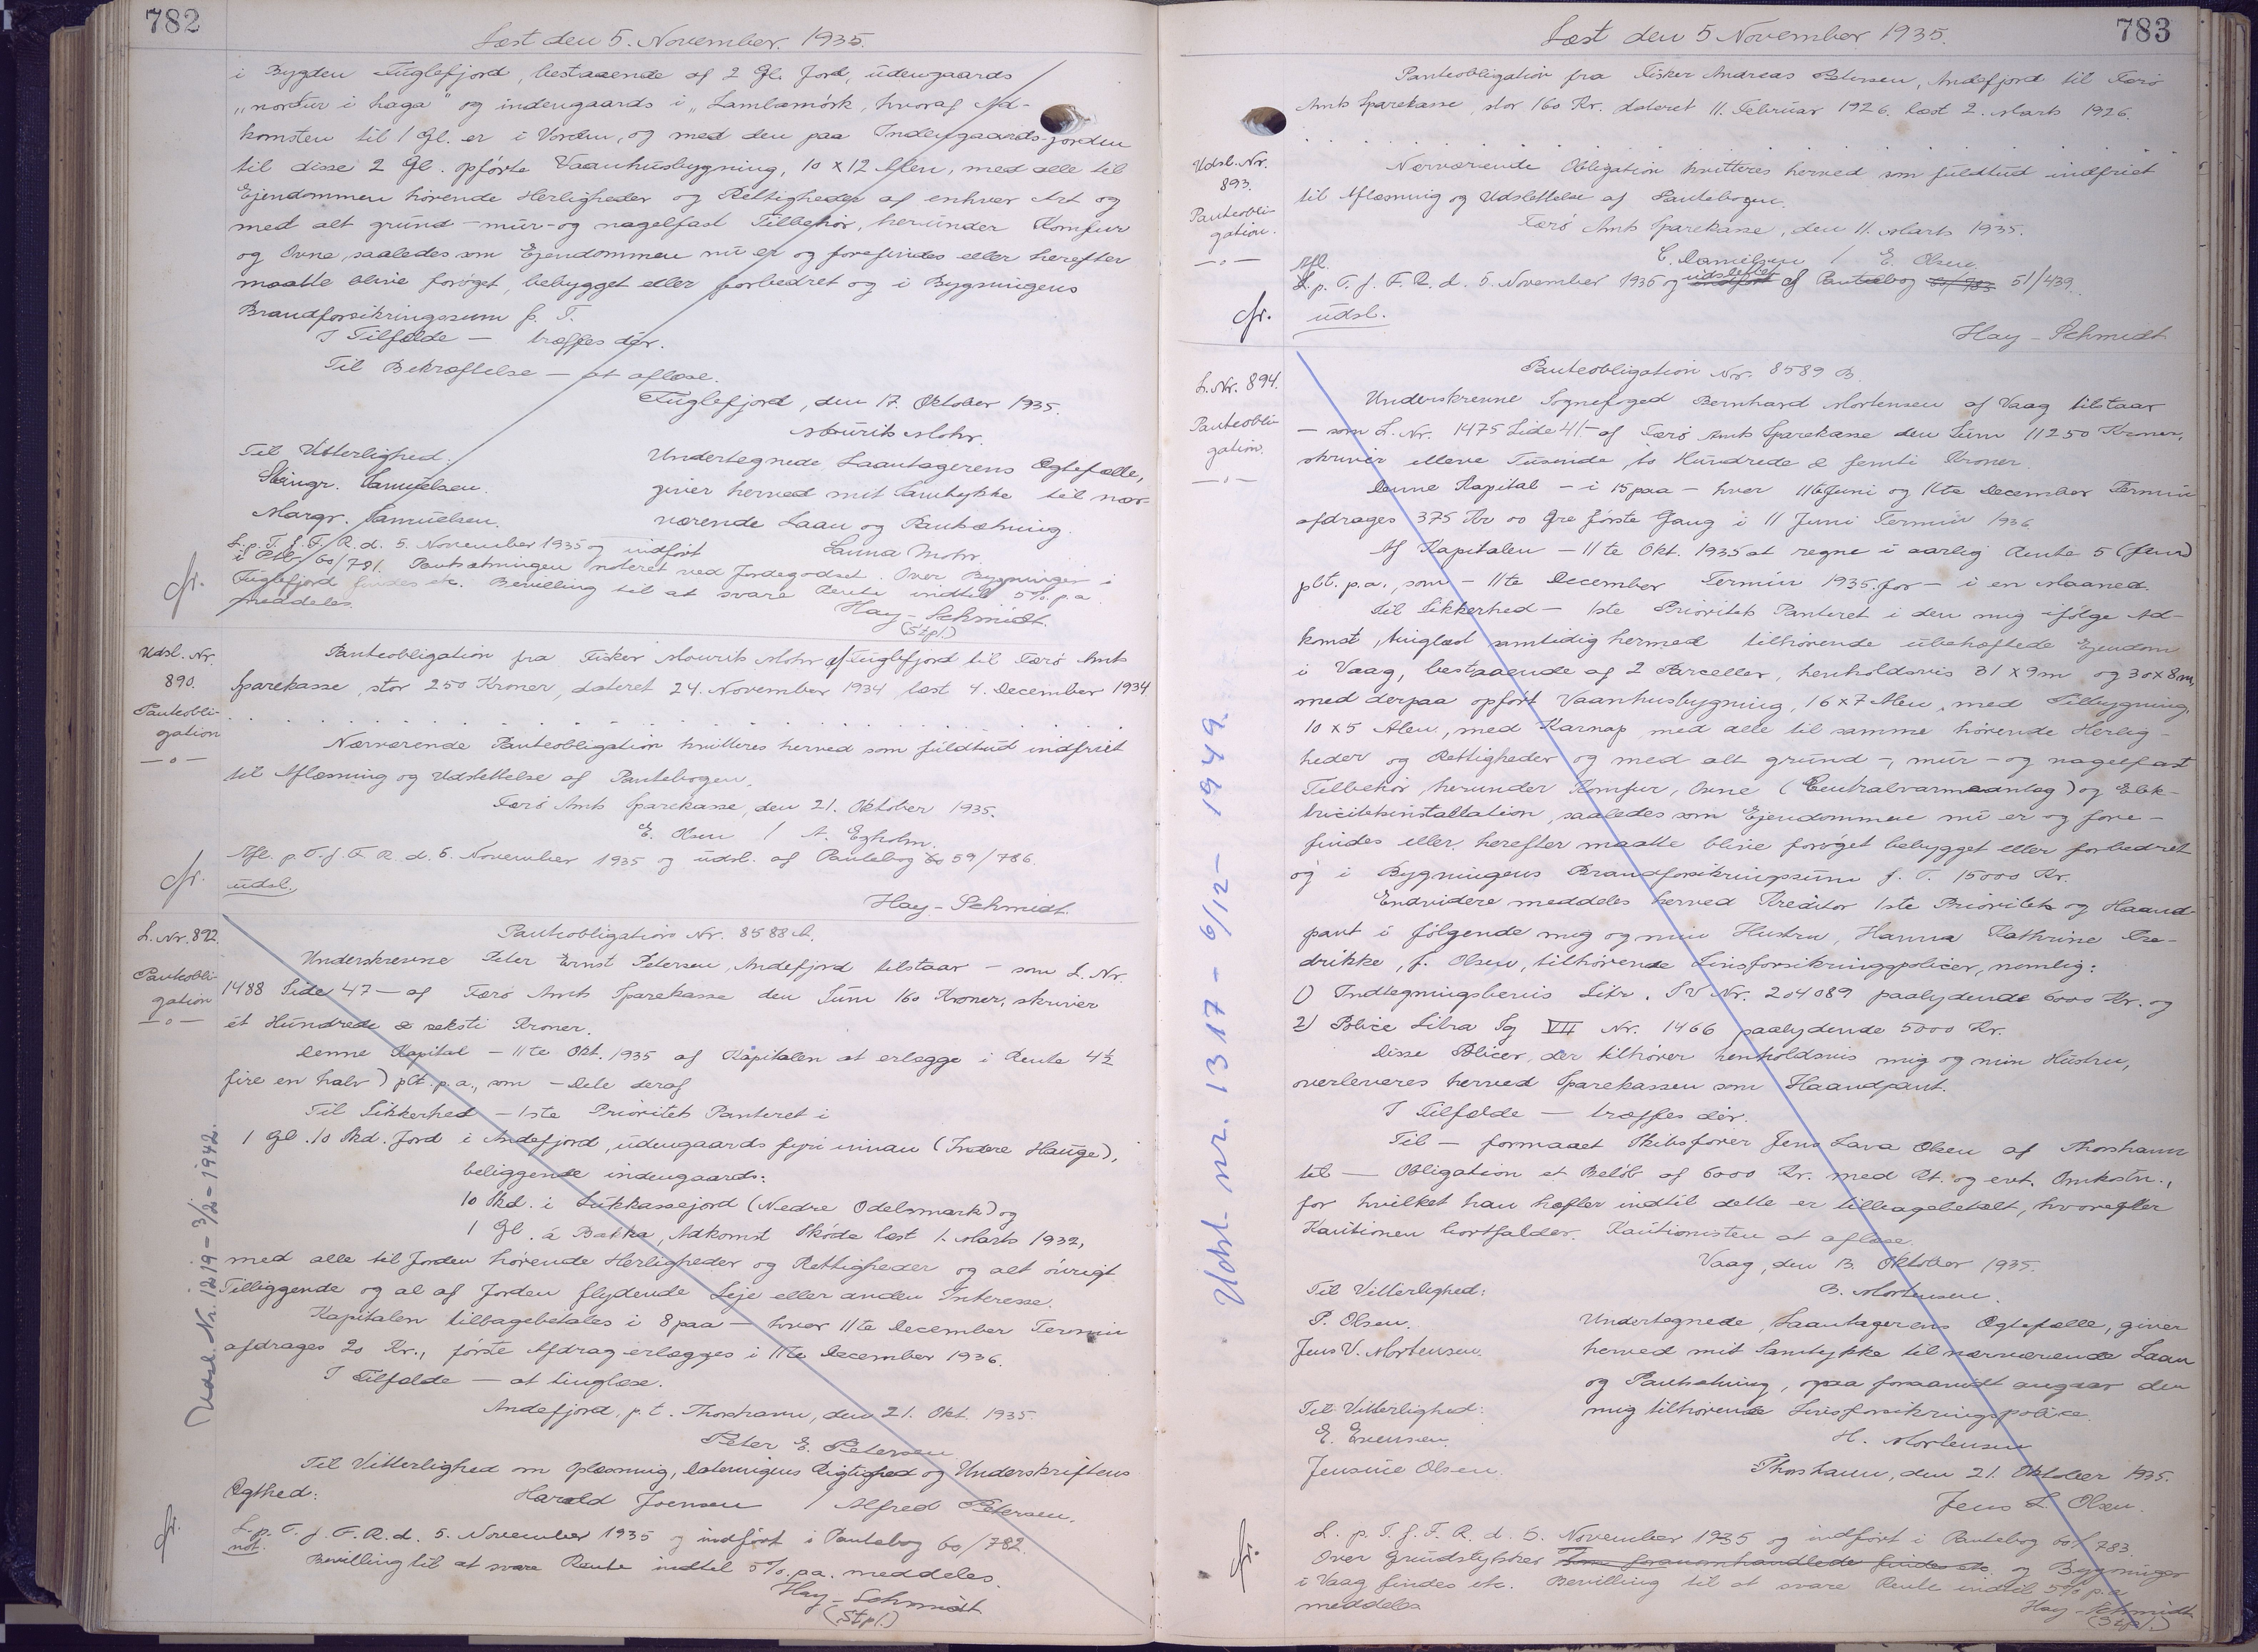 782
Læst den 5. November 1935.
i Bygden Fuglefjord, bestaaende af 2 Gl. Jord, udengaards
„nordur i haga" og indengaards i „Lambamörk, hvoraf Ad-
komsten til 1 Gl. er i Orden, og med den paa Indengaards-jorden
til disse 2 Gl. opførte Vaanhusbygning, 10 x 12 Alen, med alle til
Ejendommen hørende Herligheder og Rettigheder af enhver Art og
med alt grund-mur-og nagelfast Tilbehør, herunder Komfur
og Ovne, saaledes som Ejendommen nu er og forefindes eller herefter
maatte blive forøget, bebygget eller forbedret og i Bygningens
Brandforsikringssum f. T.
I Tilfælde — træffes dér.
Til Bekræftelse — at aflæse.
Fuglefjord, den 17. Oktober 1935.
Mourits Mohr.
Til Vitterlighed:
Steingr. Samuelsen.
Margr. Samuelsen.
Undertegnede, Laantagerens Ægtefælle,
giver herved mit Samtykke til nær-
værende Laan og Pantsætning.
Sanna Mohr.
L. p. T. f. F. R. d. 5. November 1935 og indført
i Ptb. 60/781. Pantsætningen noteret ved Jordegodset. Over Bygningen i
Fuglefjord findes etc. Bevilling til at svare Rente indtil 5% p.a.
meddeles.
Hay-Schmidt.
(Stpl.)
Udsl. Nr.
890.
Panteobli-
gation
—o—
Panteobligation fra Fisker Mourits Mohr af Fuglefjord til Færø Amts
Sparekasse, stor 250 Kroner, dateret 24. November 1934, læst 4. December 1934
Nærværende Panteobligation kvitteres herved som fuldtud indfriet
til Aflæsning og Udslettelse af Pantebogen.
Færø Amts Sparekasse, den 21. Oktober 1935.
E. Olsen / A. Egholm.
Afl. p. T. f. F. R. d. 5. November 1935 og udsl. af Pantebog 59/786.
udsl.
Hay-Schmidt.
L. Nr. 892.
Panteobli-
gation
—o—
Panteobligation Nr. 8588 A.
Underskrevne Peter Ernst Petersen, Andefjord tilstaar — som L. Nr.
1488 Side 47 — af Færø Amts Sparekasse den Sum 160 Kroner, skriver
ét Hundrede & seksti Kroner.
Denne Kapital — 11te Okt. 1935 af Kapitalen at erlægge i Rente 4½
fire en halv) pCt. p.a., som — Dele deraf
Til Sikkerhed — 1ste Prioritets Panteret i
1 Gl. 10 Skd. Jord i Andefjord, udengaards fyri innan (Indre Hauge),
beliggende indengaards:
10 Skd. i Lukkassejord (Nedre Odelsmark) og
1 Gl. á Bakka, Adkomst Skøde læst 1. Marts 1932,
med alle til Jorden hørende Herligheder og Rettigheder og alt øvrigt
Tilliggende og al af Jorden flydende Leje eller anden Interesse.
Kapitalen tilbagebetales i 8 paa — hver 11te December Termin
afdrages 20 Kr., første Afdrag erlægges i 11te December 1936.
I Tilfælde — at tinglæse.
Andefjord, p.t. Thorshavn, den 21. Okt. 1935.
Peter E. Petersen
Til Vitterlighed om Oplæsning, Dateringens Rigtighed og Underskriftens
Ægthed:
Harald Joensen / Alfred Petersen.
L. p. T. f. F. R. d. 5. November 1935 og indført i Pantebog 60/782.
not.
Bevilling til at svare Rente indtil 5% p.a. meddeles.
Hay-Schmidt
(Stpl.)
Udsl. Nr. 1219 - 3/2 - 1942.
783
Læst den 5 November 1935.
Panteobligation fra Fisker Andreas Petersen, Andefjord til Færø
Amts Sparekasse, stor 160 Kr. dateret 11. Februar 1926. læst 2. Marts 1926.
Udsl. Nr.
893.
Panteobli-
gation.
—o—
Nærværende Obligation kvitteres herved som fuldtud indfriet
til Aflæsning og Udslettelse af Pantebogen.
Færø Amts Sparekasse, den 11. Marts 1935.
C. Danielsen / E. Olsen
Afl.
p. T. f. F. R. d. 5. November 1935 og udslettet af Pantebog 51/439.
udsl.
Hay-Schmidt
L. Nr. 894.
Panteobli-
gation.
—o—
Panteobligation Nr. 8589 B.
Underskrevne Sognefoged Bernhard Mortensen af Vaag tilstaar
— som L. Nr. 1475 Side 41 — af Færø Amts Sparekasse den Sum 11250 Kroner,
skriver elleve Tusinde, to Hundrede & femti Kroner.
Denne Kapital — i 15 paa — hver 11te Juni og 11te December Termin
afdrages 375 Kr 00 Øre første Gang i 11 Juni Termin 1936
Af Kapitalen — 11te Okt. 1935 at regne i aarlig Rente 5 (fem)
pCt. p.a., som — 11te December Termin 1935. for — i en Maaned.
Til Sikkerhed — 1ste Prioritets Panteret i den mig ifølge Ad-
komst, tinglæst samtidig hermed tilhørende ubehæftede Ejendom
i Vaag, bestaaende af 2 Parceller, henholdsvis 31 x 9m og 30 x 8m,
med derpaa opført Vaanhusbygning, 16 x 7 Alen, med Tilbygning
10 x 5 Alen, med Karnap med alle til samme hørende Herlig-
heder og Rettigheder og med alt grund-, mur- og nagelfast
Tilbehør, herunder Komfur, Ovne (Centralvarmeanlæg) og Elek-
tricitetsinstallation, saaledes som Ejendommen nu er og fore-
findes eller herefter maatte blive forøget bebygget eller forbedret
og i Bygningens Brandforsikringssum f. T. 15000 Kr.
Endvidere meddeles herved Kreditor 1ste Prioritets og Haand-
pant i følgende mig og min Hustru, Hanna Kathrine Fre-
drikke, f. Olsen, tilhørende Livsforsikringspolicer, nemlig:
1) Indtegningsbevis Litr. SV Nr. 204089 paalydende 6000 Kr. og
2) Police Litra Sg VII Nr. 1466 paalydende 5000 Kr.
Disse Policer, der tilhører henholdsvis mig og min Hustru,
overleveres herved Sparekassen som Haandpant.
I Tilfælde — træffes dér.
Til — formaaet Skibsfører Jens Lava Olsen af Thorshavn
til — Obligation et Beløb af 6000 Kr. med Rt. og evt. Omkostn.,
for hvilket han hæfter indtil dette er tilbagebetalt, hvorefter
Kautionen bortfalder. Kautionisten at aflæse.
Vaag, den 13. Oktober 1935.
B. Mortensen.
Til Vitterlighed:
P. Olsen.
Jens V. Mortensen.
Undertegnede, Laantagerens Ægtefælle, giver
herved mit Samtykke til nærværende Laan
og Pantsætning, ogsaa forsaavidt angaar den
mig tilhørende Livsforsikringspolice.
H. Mortensen
Til Vitterlighed:
E. Evensen.
Jensine Olsen.
Thorshavn, den 21. Oktober 1935.
Jens L. Olsen.
L. p. T. f. F. R. d. 5. November 1935 og indført i Pantebog 60/783.
Over Grundstykket og Bygninger
i Vaag findes etc. Bevilling til at svare Rente indtil 5% p.a.
meddeles
Hay-Schmidt
(Stpl.)
Udsl. nr. 1317 - 6/12 - 1949.